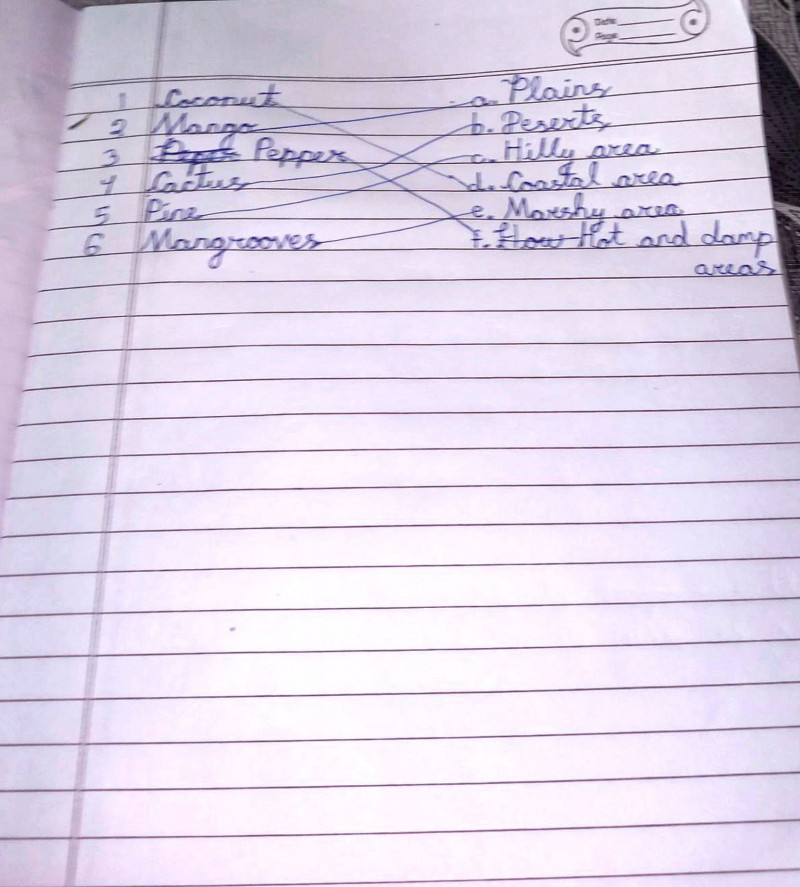 Date
Page
1 Coconut a. Plains
2 Mango b. Deserts
3 Pepper c. Hilly area
4 Cactus d. Coastal area
5 Pine e. Marshy area
6 Mangrooves f. Hot and damp
areas